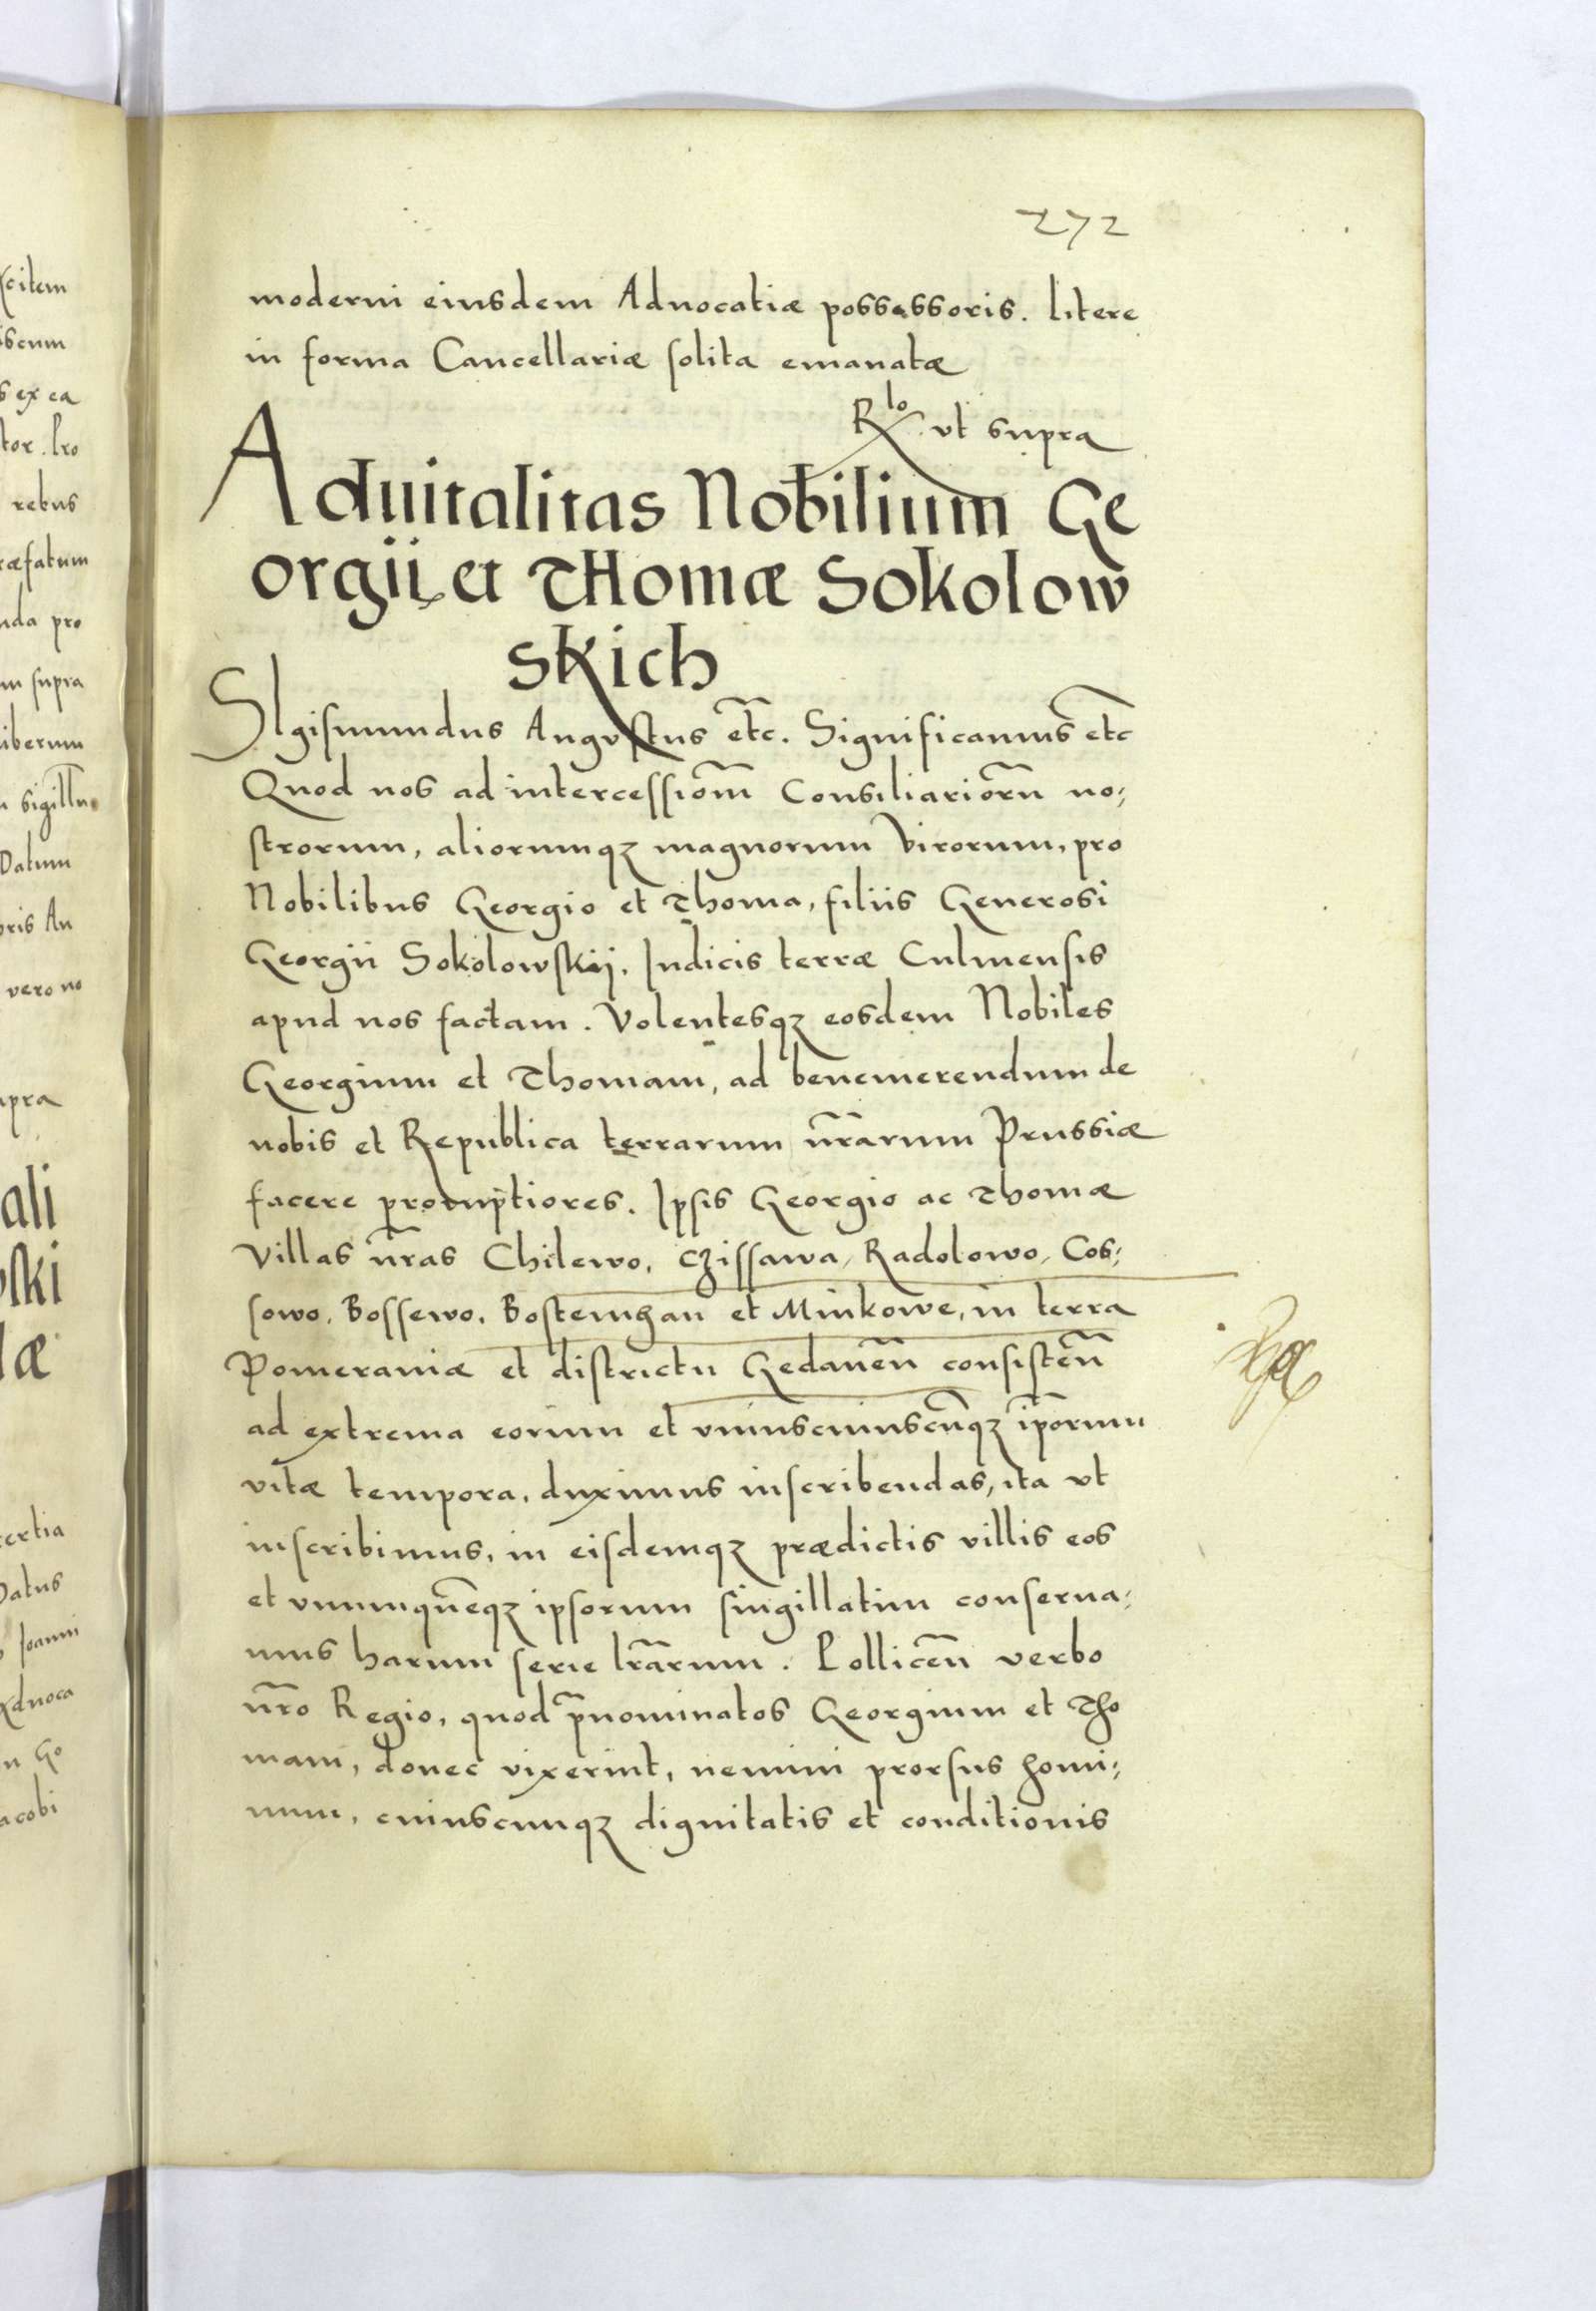 272
moderni eiusdem Aduocatiæ possessoris. Litere
in forma Cancellariæ solita emanatæ
Rlo ut supra
Aduitalitas Nobilium Ge
orgii et THomæ Sokolow
skich
SIgismundus Augustus etc. Significamus etc
Quod nos ad intercessiom̃ Consiliariorũ no;
strorum, aliorumqz magnorum Virorum, pro
Nobilibus Georgio et Thoma, filiis Generosi
Georgii Sokolowskij, Iudicis terræ Culmensis
apud nos factam. Volentesqz eosdem Nobiles
Georgium et Thomam, ad benemerendum de
nobis et Republica terrarum nr̃arum Prussiæ
facere promptiores. Ipsis Georgio ac Thomæ
Villas nr̃as Chilewo, Czissawa, Radolowo, Cos;
sowo, Bossewo, Bostemhan et Minkowe, in terra
Pomeraniæ et districtu Gedaneñ consisteñ
ad extrema eorum et uniuscuiuscũqz ip̃orum
vitæ tempora, duximus inscribendas, ita ut
inscribimus, in eisdemqz prædictis villis eos
et unumquẽqz ipsorum singillatim conserua;
mus harum serie lr̃arum. Polliceñ verbo
nr̃o Regio, quod p̃nominatos Georgium et Tho
mam, donec vixerint, nemini prorsus homi;
num, cuiuscunqz dignitatis et conditionis